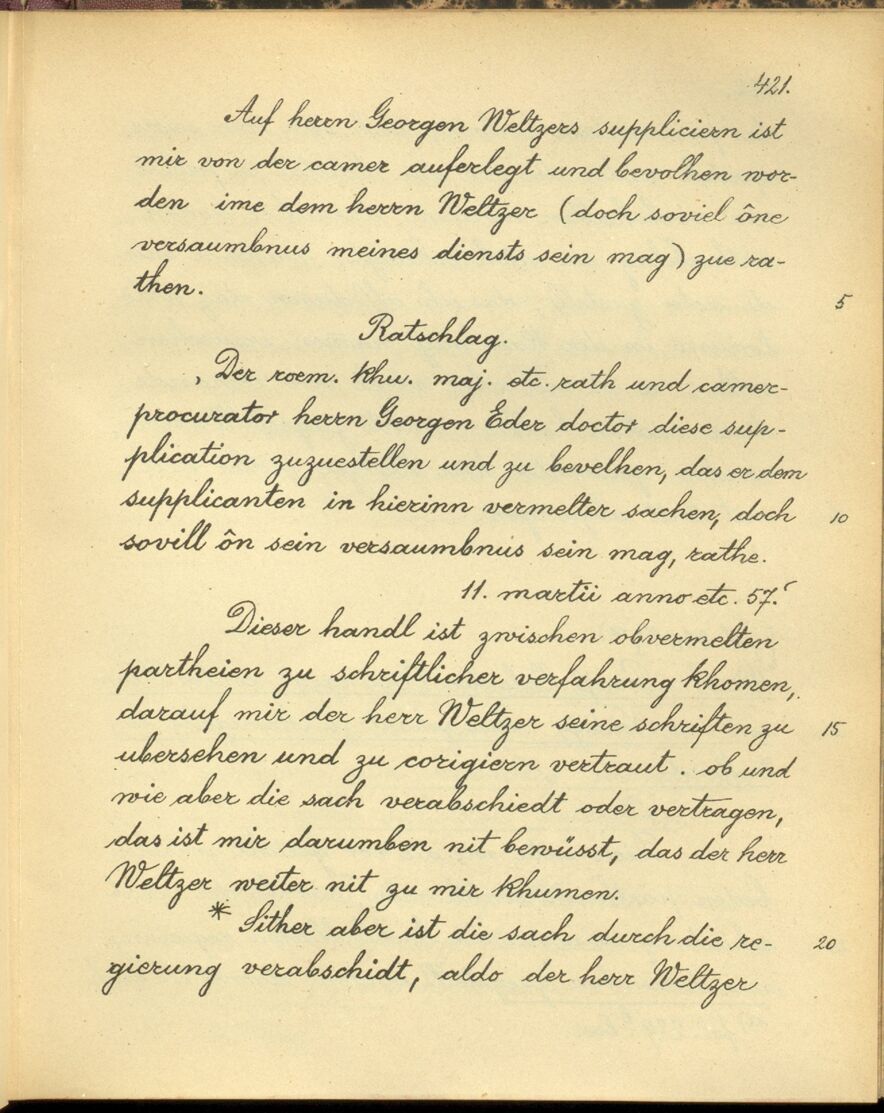 421.
Auf herrn Georgen Weltzers suppliciern ist
mir von der camer auferlegt und bevolhen wor-
den ime dem herrn Weltzer (doch soviel ône
versaumbnus meines diensts sein mag) zue ra-
then. 5
Ratschlag.
‚Der roem. khu. maj. etc. rath und camer-
procurator herrn Georgen Eder doctor diese sup-
plication zuzuestellen und zu bevelhen, das er dem
supplicanten in hierinn vermelter sachen, doch 10
sovill ôn sein versaumbnus sein mag, rathe.
11. martii anno etc. 57.‘
Dieser handl ist zwischen obvermelten
partheien zu schriftlicher verfahrung khomen,
darauf mir der herr Weltzer seine schriften zu 15
ubersehen und zu corigiern vertraut. ob und
wie aber die sach verabschiedt oder vertragen,
das ist mir darumben nit bewüsst, das der herr
Weltzer weiter nit zu mir khumen.
* Sither aber ist die sach durch die re- 20
gierung verabschidt, aldo der herr Weltzer